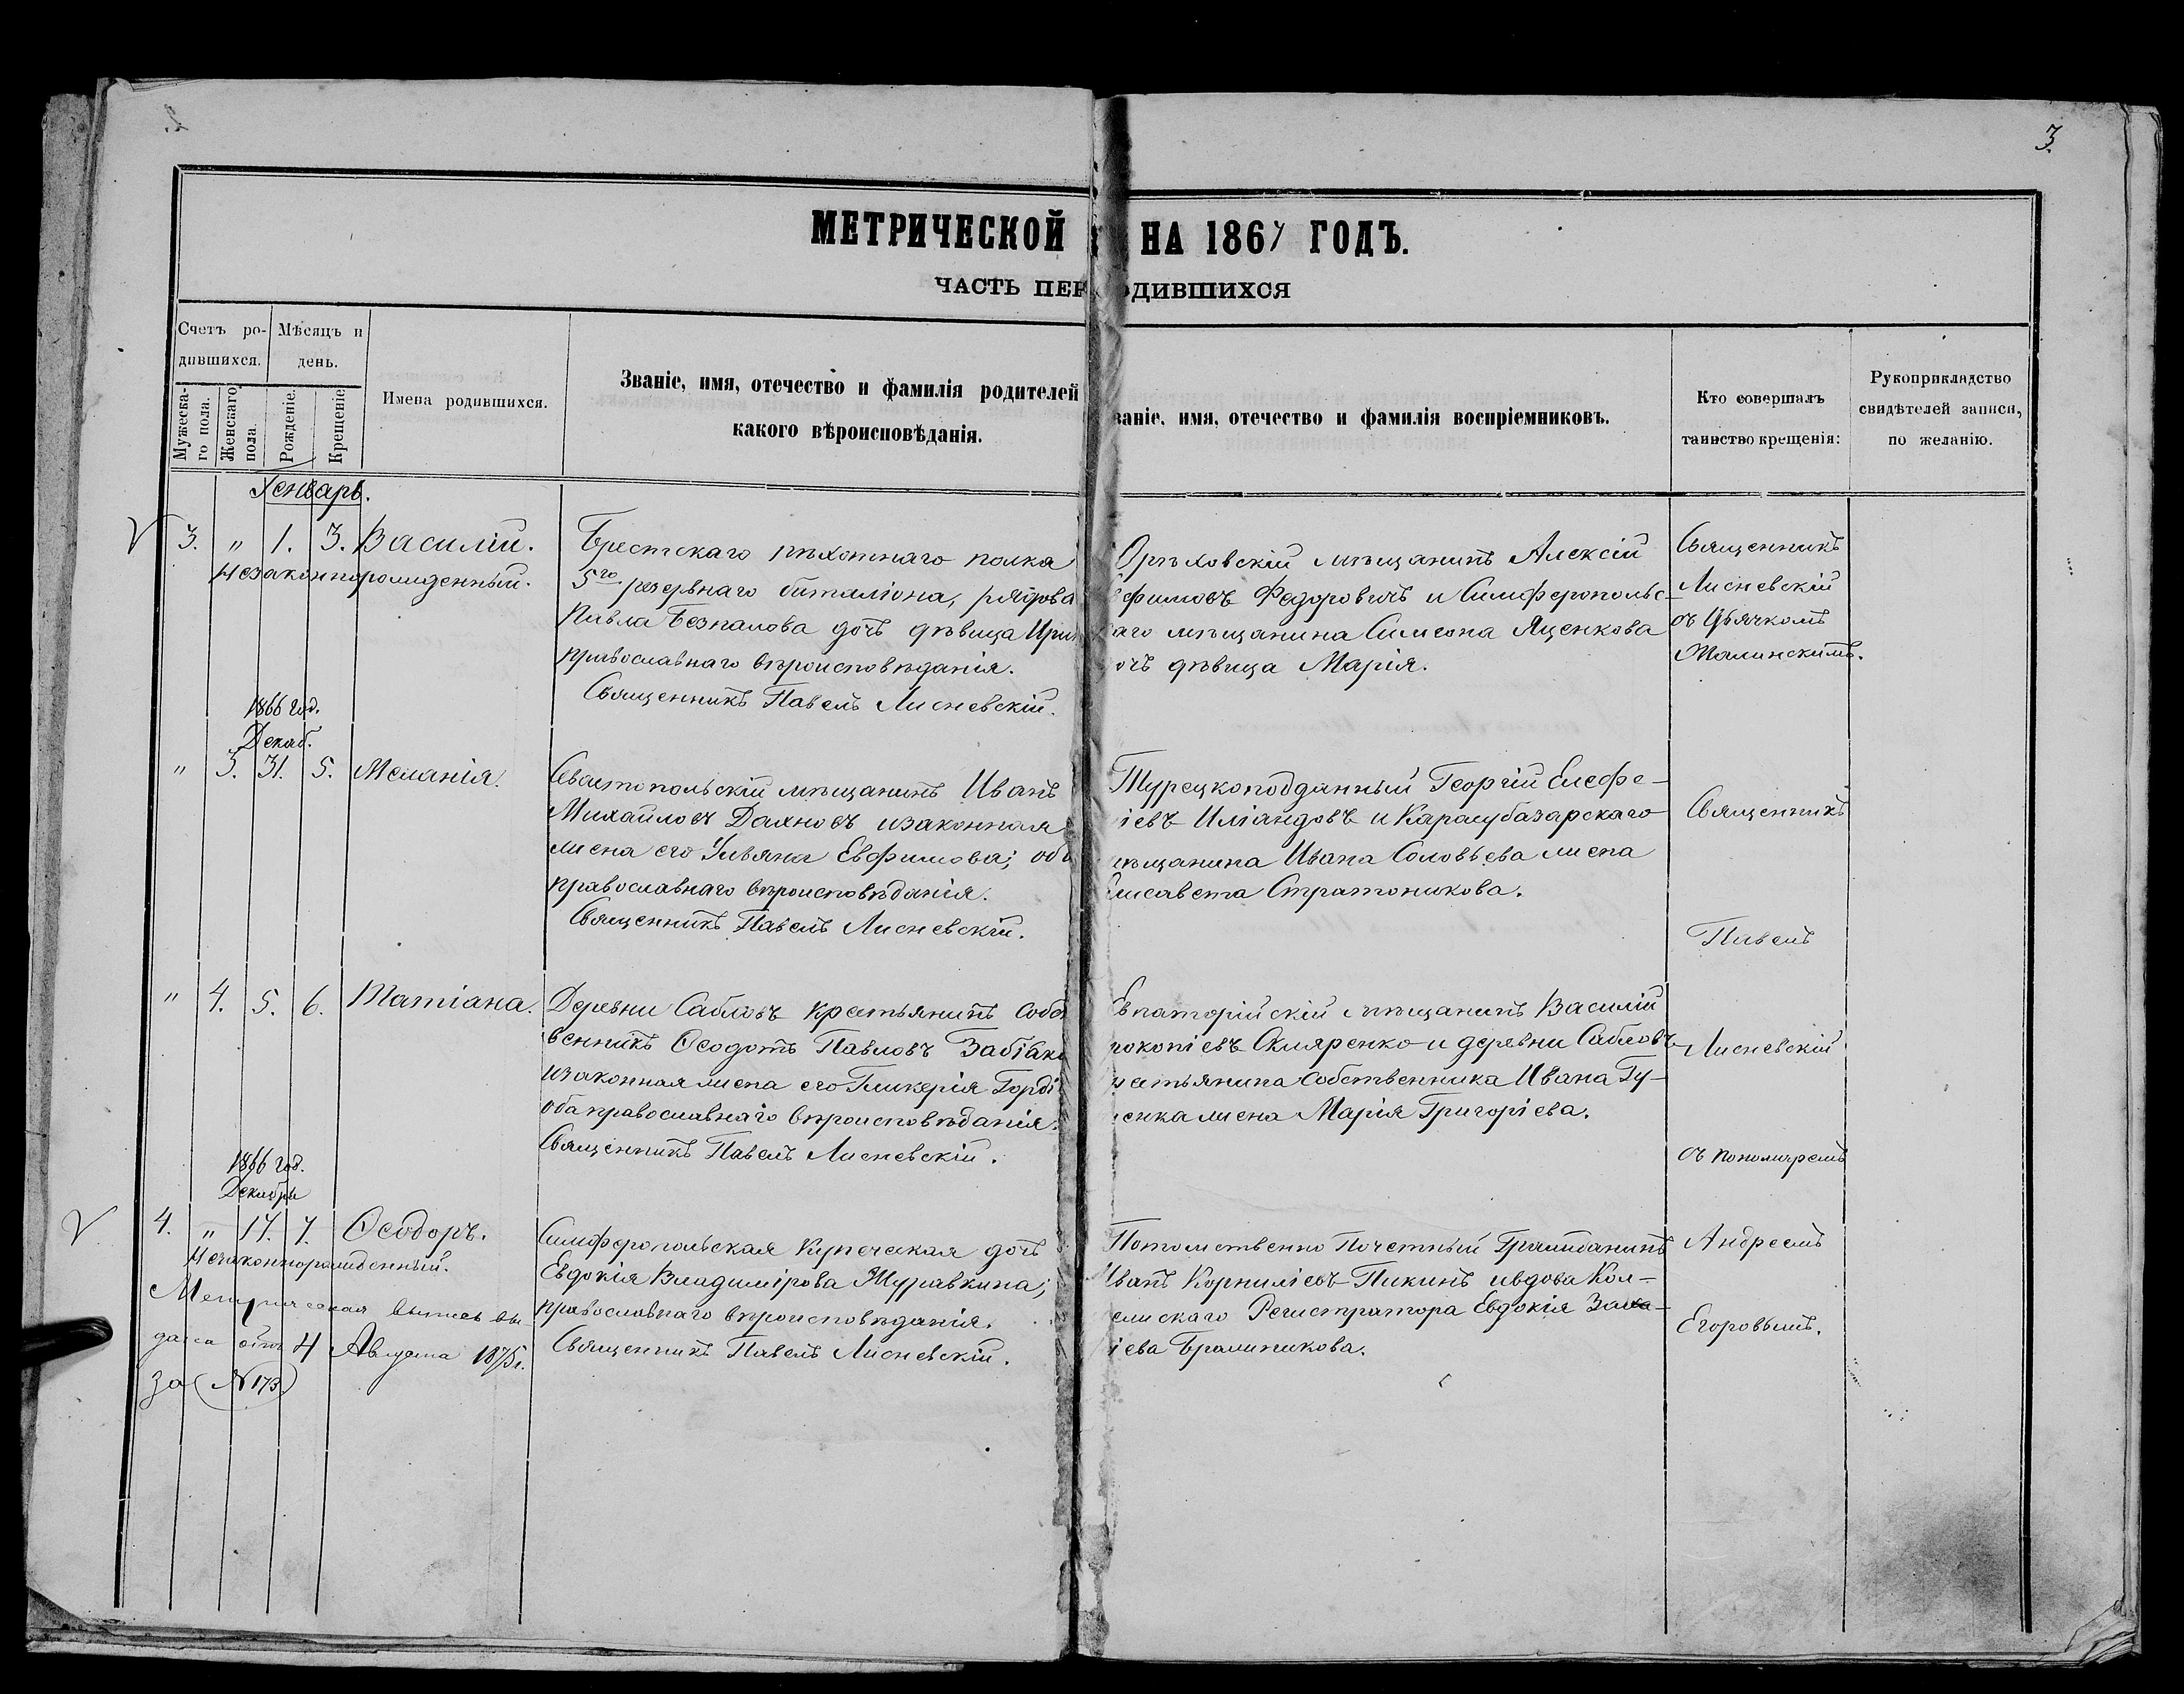 3.
МЕТРИЧЕСКОЙ НА 1867 ГОДЪ.
ЧАСТЬ ПЕР ОДИВШИХСЯ
Счетъ ро-
дившихся.
Мѣсяцъ и
день.
Мужеска-
го пола.
Женскаго
пола.
Рожденіе.
Крещеніе.
Имена родившихся.
Званіе, имя, отечество и фамилія родителей
какого вѣроисповѣданія.
званіе, имя, отечество и фамилія воспріемниковъ.
Кто совершалъ
таинство крещенія:
Рукоприкладство
свидѣтелей записи,
по желанію.
Генварь.
3. " 1. 3. Василій.
Незаконнорожденный.
Брестскаго пѣхотнаго полка
5го резервнаго баталіона, рядова
Павла Безпалова дочь дѣвица Ири
православнаго вѣроисповѣданія.
Священникъ Павелъ Лисневскій.
Орѣховскій мѣщанинъ Алексій
Ефимовъ Федоровичъ и Симферопольс-
каго мѣщанина Симеона Яценкова
дочь дѣвица Марія.
Священникъ
Лисневскій
съ Дьячкомъ
Малинскимъ.
1866 год.
Декаб.
" 3. 31. 5. Меланія.
Севастопольскій мѣщанинъ Иванъ
Михайловъ Дахновъ и законная
жена его Ульяна Евфимова; оба
православнаго вѣроисповѣданія.
Священникъ Павелъ Лисневскій.
Турецкоподданный Георгій Елефе-
ріевъ Иліандовъ и Карасубазарскаго
мѣщанина Ивана Соловьева жена
Елисавета Стратоникова.
Священникъ
Павелъ
" 4. 5. 6. Татіана.
Деревни Сабловъ крестьянинъ собст
венникъ Ѳеодотъ Павловъ Забіяка
и законная жена его Гликерія Горді
оба православнаго вѣроисповѣданія.
Священникъ Павелъ Лисневскій.
Евпаторійскій мѣщанинъ Василій
Прокопіевъ Скляренко и деревни Сабловъ
крестьянина собственника Ивана Гу-
енка жена Марія Григоріева.
Лисневскій
съ пономаремъ
1866 год.
Декабрь
4. " 17. 7. Ѳеодоръ.
Незаконнорожденный.
Метрическая выпись вы-
дана отъ 4 Августа 1875 г.
за (№ 173)
Симферопольская Купеческая дочь
Евдокія Владимірова Журавкина;
православнаго вѣроисповѣданія.
Священникъ Павелъ Лисневскій.
Потомственно Почетный Гражданинъ
Иванъ Корниліевъ Пикинъ и вдова Кол-
лежскаго Регистратора Евдокія Заха-
ріева Бражникова.
Андреемъ
Егоровымъ.